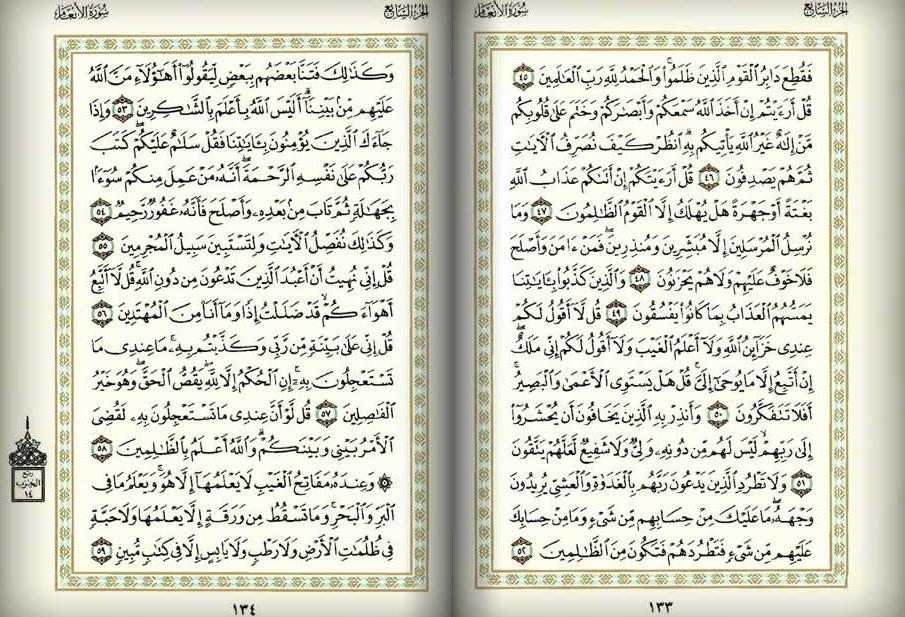 سُورَةُ الأَنْعَامِ
الجُزْءُ السَّابِعُ
فَقُطِعَ دَابِرُ ٱلْقَوْمِ ٱلَّذِينَ ظَلَمُوا۟ وَٱلْحَمْدُ لِلَّهِ رَبِّ ٱلْعَٰلَمِينَ ٤٥
قُلْ أَرَءَيْتُمْ إِنْ أَخَذَ ٱللَّهُ سَمْعَكُمْ وَأَبْصَٰرَكُمْ وَخَتَمَ عَلَىٰ قُلُوبِكُم
مَّنْ إِلَٰهٌ غَيْرُ ٱللَّهِ يَأْتِيكُم بِهِ ۗ ٱنظُرْ كَيْفَ نُصَرِّفُ ٱلْءَايَٰتِ
ثُمَّ هُمْ يَصْدِفُونَ ٤٦ قُلْ أَرَءَيْتَكُمْ إِنْ أَتَىٰكُمْ عَذَابُ ٱللَّهِ
بَغْتَةً أَوْ جَهْرَةً هَلْ يُهْلَكُ إِلَّا ٱلْقَوْمُ ٱلظَّٰلِمُونَ ٤٧ وَمَا
نُرْسِلُ ٱلْمُرْسَلِينَ إِلَّا مُبَشِّرِينَ وَمُنذِرِينَ ۖ فَمَنْ ءَامَنَ وَأَصْلَحَ
فَلَا خَوْفٌ عَلَيْهِمْ وَلَا هُمْ يَحْزَنُونَ ٤٨ وَٱلَّذِينَ كَذَّبُوا۟ بِـَٔايَٰتِنَا
يَمَسُّهُمُ ٱلْعَذَابُ بِمَا كَانُوا۟ يَفْسُقُونَ ٤٩ قُل لَّآ أَقُولُ لَكُمْ
عِندِى خَزَآئِنُ ٱللَّهِ وَلَآ أَعْلَمُ ٱلْغَيْبَ وَلَآ أَقُولُ لَكُمْ إِنِّى مَلَكٌ ۖ
إِنْ أَتَّبِعُ إِلَّا مَا يُوحَىٰٓ إِلَىَّ ۚ قُلْ هَلْ يَسْتَوِى ٱلْأَعْمَىٰ وَٱلْبَصِيرُ ۚ
أَفَلَا تَتَفَكَّرُونَ ٥٠ وَأَنذِرْ بِهِ ٱلَّذِينَ يَخَافُونَ أَن يُحْشَرُوٓا۟
إِلَىٰ رَبِّهِمْ ۙ لَيْسَ لَهُم مِّن دُونِهِۦ وَلِىٌّ وَلَا شَفِيعٌ لَّعَلَّهُمْ يَتَّقُونَ
٥١ وَلَا تَطْرُدِ ٱلَّذِينَ يَدْعُونَ رَبَّهُم بِٱلْغَدَوٰةِ وَٱلْعَشِىِّ يُرِيدُونَ
وَجْهَهُۥ ۖ مَا عَلَيْكَ مِنْ حِسَابِهِم مِّن شَىْءٍ وَمَا مِنْ حِسَابِكَ
عَلَيْهِم مِّن شَىْءٍ فَتَطْرُدَهُمْ فَتَكُونَ مِنَ ٱلظَّٰلِمِينَ ٥٢
١٣٣
سُورَةُ الأَنْعَامِ
الجُزْءُ السَّابِعُ
وَكَذَٰلِكَ فَتَنَّا بَعْضَهُم بِبَعْضٍ لِّيَقُولُوٓا۟ أَهَٰٓؤُلَآءِ مَنَّ ٱللَّهُ
عَلَيْهِم مِّنۢ بَيْنِنَآ ۗ أَلَيْسَ ٱللَّهُ بِأَعْلَمَ بِٱلشَّٰكِرِينَ ٥٣ وَإِذَا
جَآءَكَ ٱلَّذِينَ يُؤْمِنُونَ بِـَٔايَٰتِنَا فَقُلْ سَلَٰمٌ عَلَيْكُمْ ۖ كَتَبَ
رَبُّكُمْ عَلَىٰ نَفْسِهِ ٱلرَّحْمَةَ ۖ أَنَّهُۥ مَنْ عَمِلَ مِنكُمْ سُوٓءًۢا
بِجَهَٰلَةٍ ثُمَّ تَابَ مِنۢ بَعْدِهِۦ وَأَصْلَحَ فَأَنَّهُۥ غَفُورٌ رَّحِيمٌ ٥٤
وَكَذَٰلِكَ نُفَصِّلُ ٱلْءَايَٰتِ وَلِتَسْتَبِينَ سَبِيلُ ٱلْمُجْرِمِينَ ٥٥
قُلْ إِنِّى نُهِيتُ أَنْ أَعْبُدَ ٱلَّذِينَ تَدْعُونَ مِن دُونِ ٱللَّهِ ۚ قُل لَّآ أَتَّبِعُ
أَهْوَآءَكُمْ ۙ قَدْ ضَلَلْتُ إِذًا وَمَآ أَنَا۠ مِنَ ٱلْمُهْتَدِينَ ٥٦
قُلْ إِنِّى عَلَىٰ بَيِّنَةٍ مِّن رَّبِّى وَكَذَّبْتُم بِهِۦ ۚ مَا عِندِى مَا
تَسْتَعْجِلُونَ بِهِۦٓ ۚ إِنِ ٱلْحُكْمُ إِلَّا لِلَّهِ ۖ يَقُصُّ ٱلْحَقَّ ۖ وَهُوَ خَيْرُ
ٱلْفَٰصِلِينَ ٥٧ قُل لَّوْ أَنَّ عِندِى مَا تَسْتَعْجِلُونَ بِهِۦ لَقُضِىَ
ٱلْأَمْرُ بَيْنِى وَبَيْنَكُمْ ۗ وَٱللَّهُ أَعْلَمُ بِٱلظَّٰلِمِينَ ٥٨
۞ وَعِندَهُۥ مَفَاتِحُ ٱلْغَيْبِ لَا يَعْلَمُهَآ إِلَّا هُوَ ۚ وَيَعْلَمُ مَا فِى
ٱلْبَرِّ وَٱلْبَحْرِ ۚ وَمَا تَسْقُطُ مِن وَرَقَةٍ إِلَّا يَعْلَمُهَا وَلَا حَبَّةٍ
فِى ظُلُمَٰتِ ٱلْأَرْضِ وَلَا رَطْبٍ وَلَا يَابِسٍ إِلَّا فِى كِتَٰبٍ مُّبِينٍ ٥٩
ربع
الحزب
١٤
١٣٤